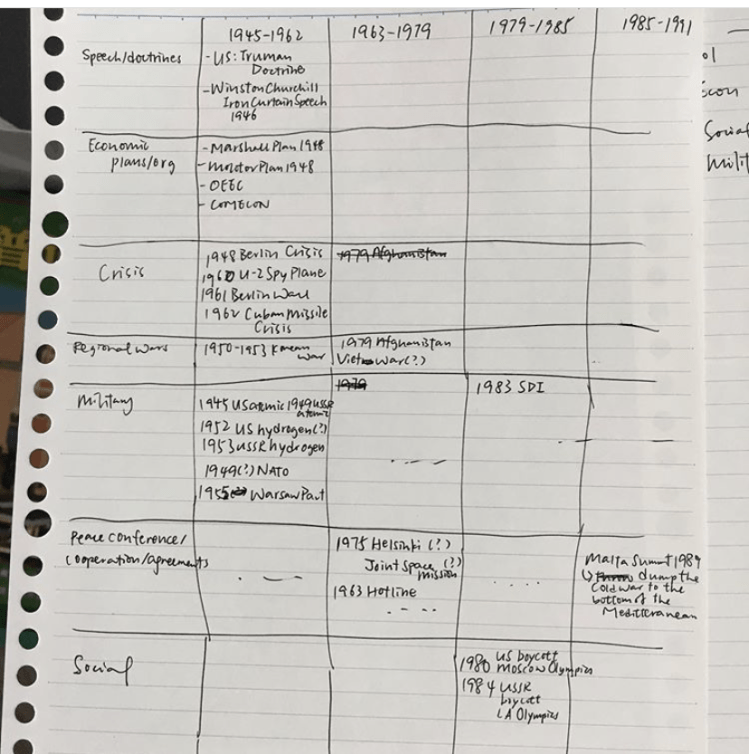 1945-1962 1963-1979 1979-1985 1985-1991
Speech/doctrines
- US: Truman
Doctrine
- Winston Churchill
Iron Curtain Speech
1946
Economic
plans/org
- Marshall Plan 1948
- Molotov Plan 1948
- OEEC
- COMECON
Crisis
1948 Berlin Crisis
1960 U-2 Spy Plane
1961 Berlin Wall
1962 Cuban Missile
Crisis
1979 Afghanistan
Regional Wars
1950-1953 Korean
War
1979 Afghanistan
Viet War (?)
Military
1945 US atomic 1949 USSR
atomic
1952 US hydrogen (?)
1953 USSR hydrogen
1949 (?) NATO
1955 Warsaw Pact
1979
1983 SDI
Peace conference/
cooperation/agreements
1975 Helsinki (?)
Joint Space (?)
mission
1963 Hotline
Malta Summit 1989
↳ dump the
Cold War to the
bottom of the
Mediterranean
Social
1980 US boycott
Moscow Olympics
1984 USSR
boycott
LA Olympics
ol
Econ
Social
Milit